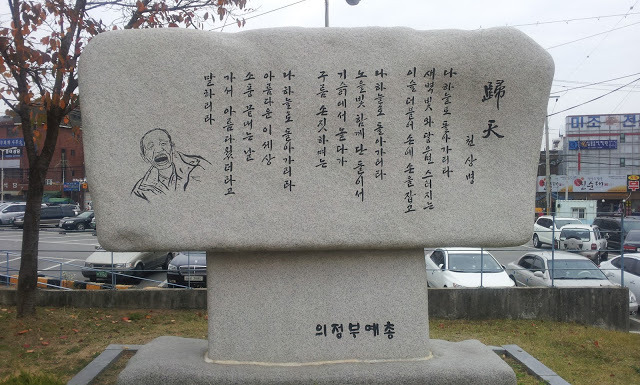 歸天
천상병
나 하늘로 돌아가리라
새벽빛 와 닿으면 스러지는
이슬 더불어 손에 손을 잡고
나 하늘로 돌아가리라
노을빛 함께 단 둘이서
기슭에서 놀다가
구름 손짓하며는
나 하늘로 돌아가리라
아름다운 이 세상
소풍 끝내는 날
가서 아름다웠더라고
말하리라
의정부예총